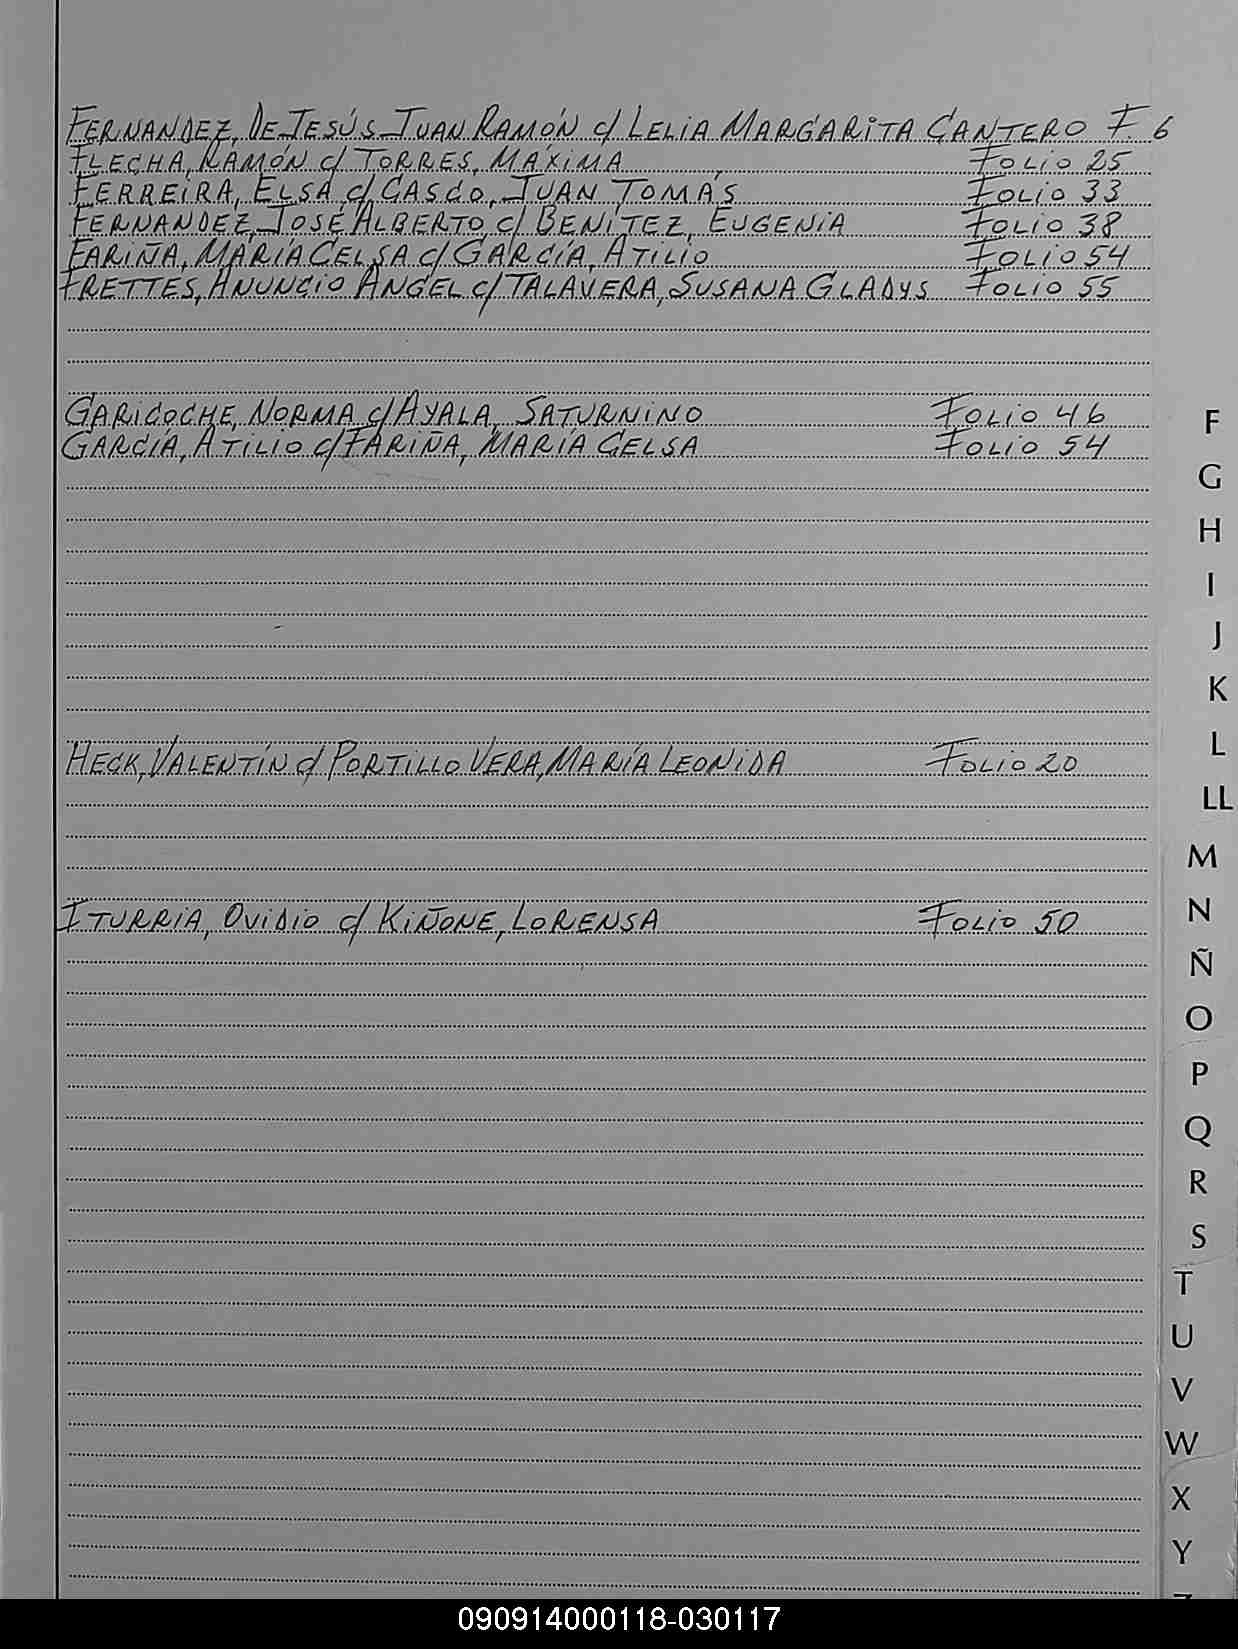 FERNANDEZ, DE JESÚS JUAN RAMÓN c/ LELIA MARGARITA CANTERO F. 6
FLECHA, RAMÓN c/ TORRES, MÁXIMA FOLIO 25
FERREIRA, ELSA c/ CASCO, JUAN TOMÁS FOLIO 33
FERNANDEZ, JOSÉ ALBERTO c/ BENÍTEZ, EUGENIA FOLIO 38
FARIÑA, MARÍA CELSA c/ GARCÍA, ATILIO FOLIO 54
FRETTES, ANUNCIO ANGEL c/ TALAVERA, SUSANA GLADYS FOLIO 55
GARICOCHE, NORMA c/ AYALA, SATURNINO FOLIO 46
GARCÍA, ATILIO c/ FARIÑA, MARÍA CELSA FOLIO 54
HECK, VALENTÍN c/ PORTILLO VERA, MARÍA LEONIDA FOLIO 20
ITURRIA, OVIDIO c/ KIÑONE, LORENSA FOLIO 50
F
G
H
I
J
K
L
LL
M
N
Ñ
O
P
Q
R
S
T
U
V
W
X
Y
090914000118-030117